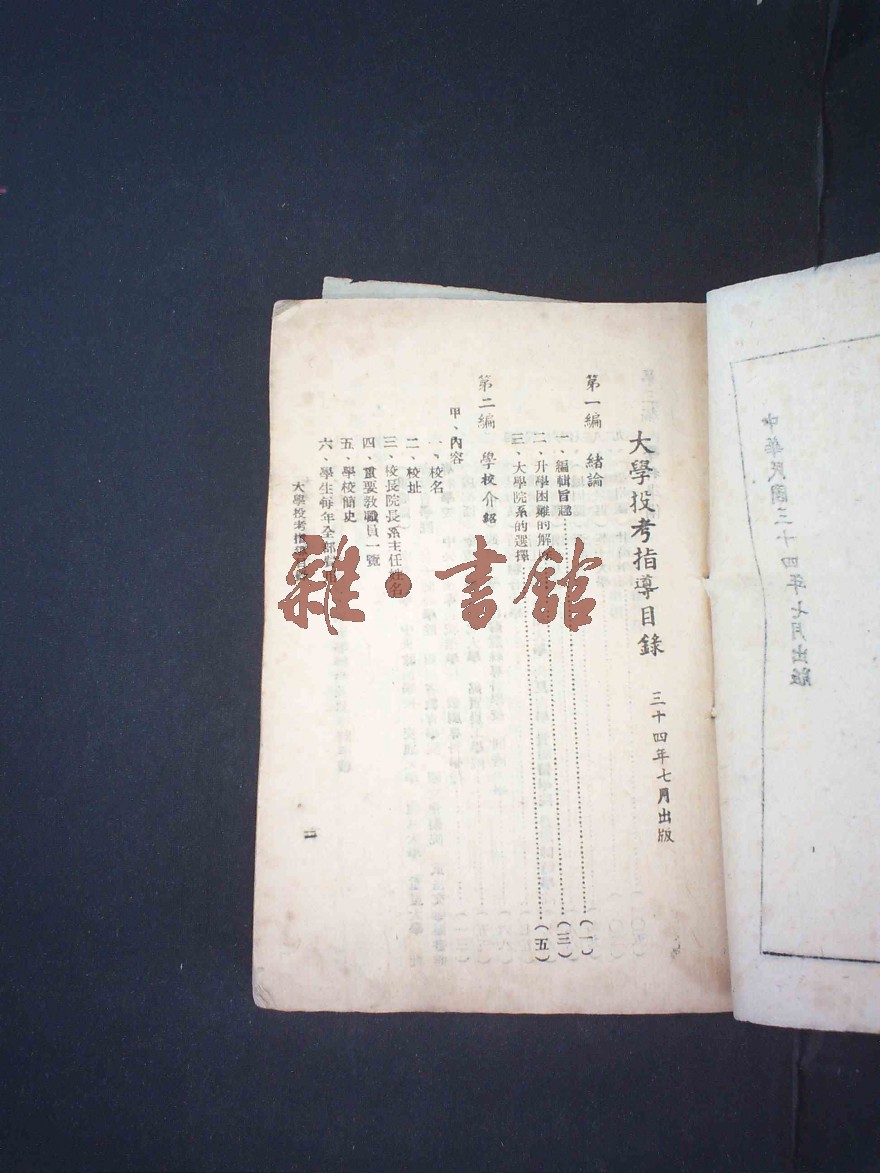 中華民國三十四年七月出版
大學投考指導目錄
三十四年七月出版
第一編 緒論……(一)
一、編輯旨趣……(三)
二、升學困難的解……(五)
三、大學院系的選擇
第二編 學校介紹
甲、內容
一、校名
二、校址
三、校長院長系主任姓名
四、重要教職員一覽
五、學校簡史
六、學生每年全部
大學投考指導目
雜·書館